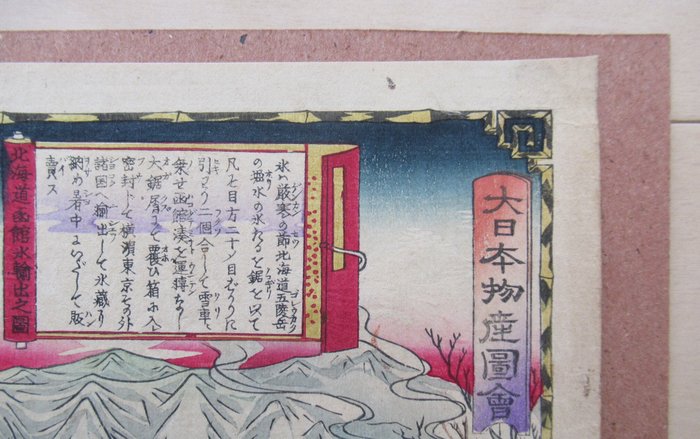 大日本物産圖會
氷ハ嚴寒の節北海道五陵岳
の塩水の氷れるを鋸を以て
凡そ目方二十メ目づゝに
引わり二個合して雪車に
乗せ函館湊を運轉なし
大鋸屑にて覆ひ箱に入
密封して横濱東京その外
諸国へ輸出して氷藏に
納め暑中にいだして販
賣ス
北海道函館氷輸出之圖